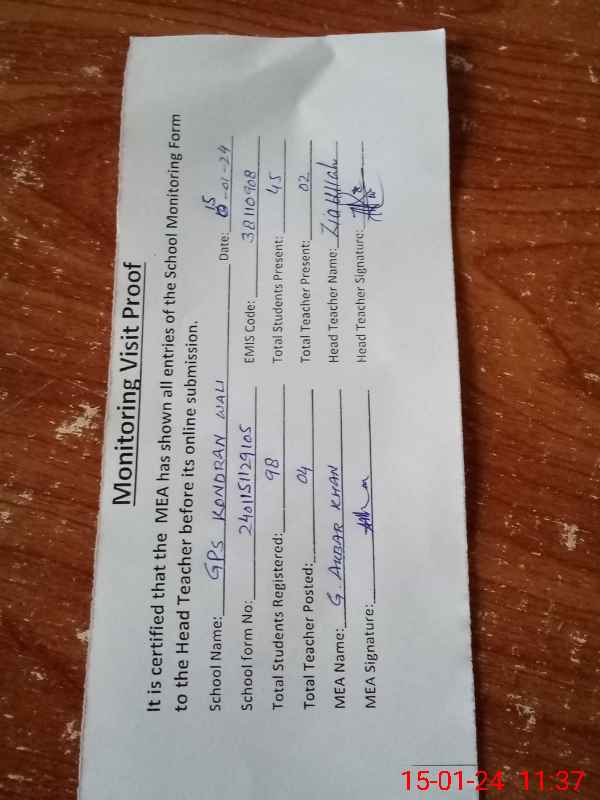 Monitoring Visit Proof
It is certified that the MEA has shown all entries of the School Monitoring Form
to the Head Teacher before its online submission.
School Name: GPS KONDRAN WALI Date: 15-01-24
School form No: 2401151129105 EMIS Code: 38110908
Total Students Registered: 98 Total Students Present: 45
Total Teacher Posted: 04 Total Teacher Present: 02
MEA Name: G. AKBAR KHAN Head Teacher Name: Ziaullah
MEA Signature: Head Teacher Signature:
15-01-24 11:37